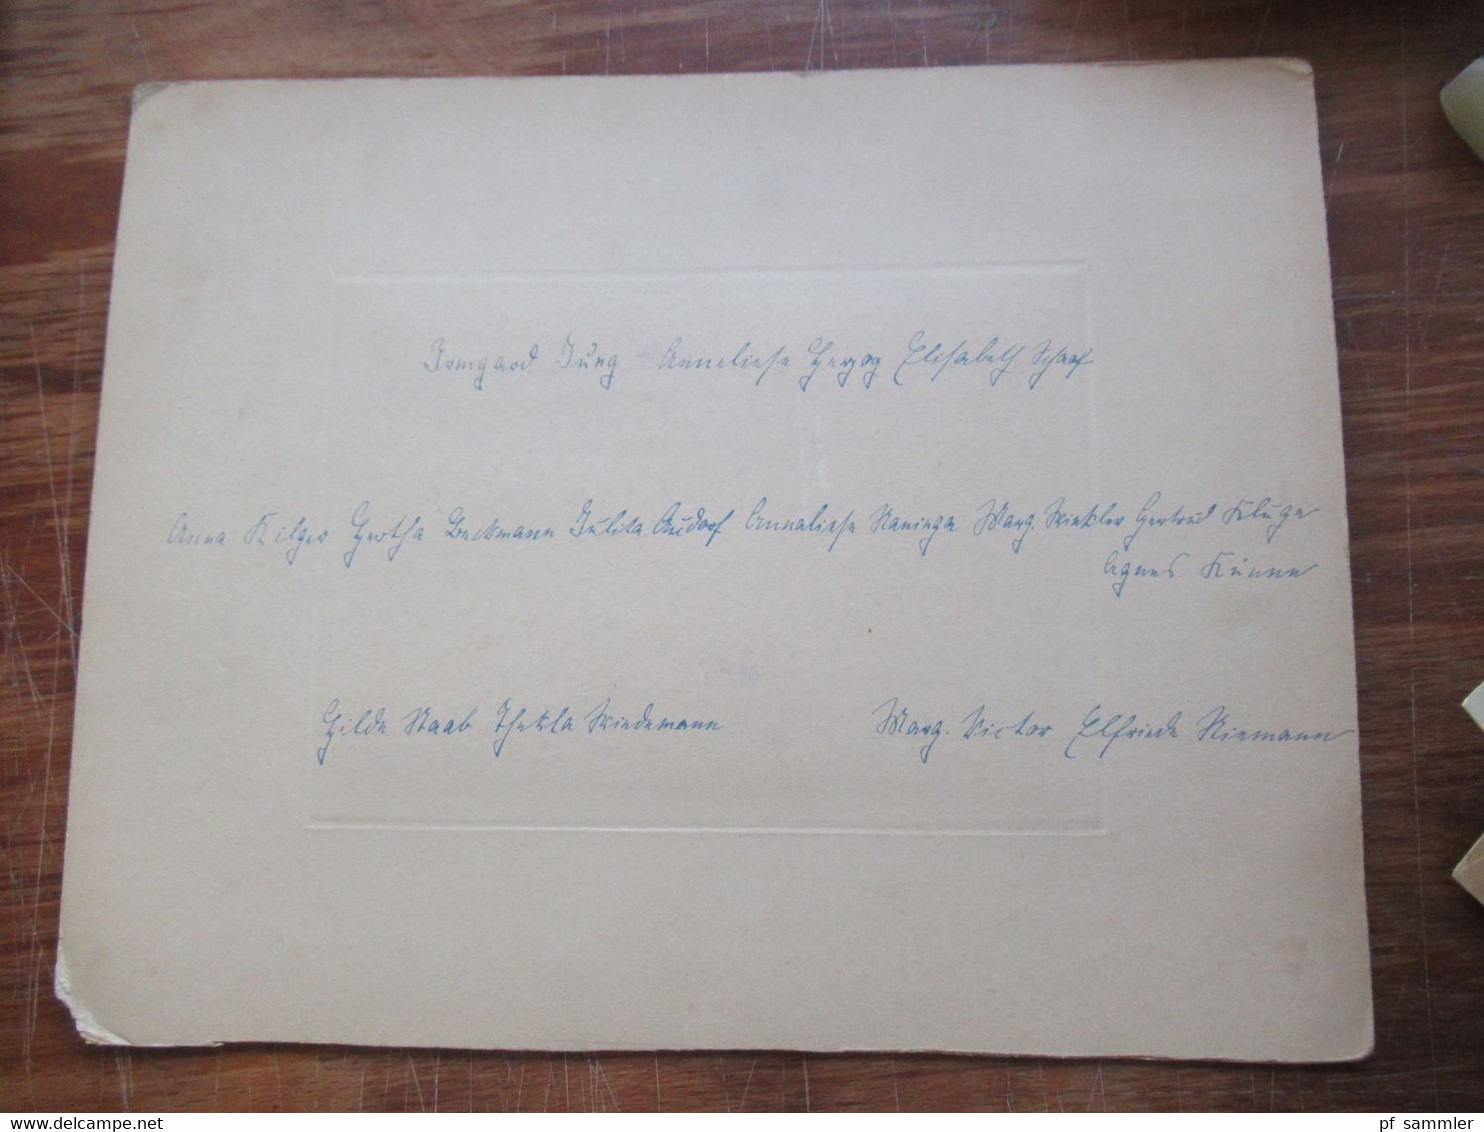 Irmgard Jung Anneliese Herzog Elisabeth Schaaf
Anna Kilger Hertha Beckmann Julita Audorf Annaliese Naninga Marg. Winkler Gertrud Kluge
Agnes Künne
Hilde Staab Thekla Wiedemann Marg. Victor Elfriede Niemann
www.delcampe.net
pf_sammler